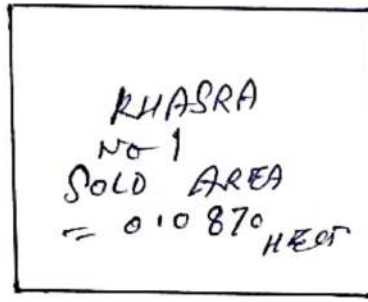 KHASRA
No 1
SOLD AREA
= 0.0870 HECT